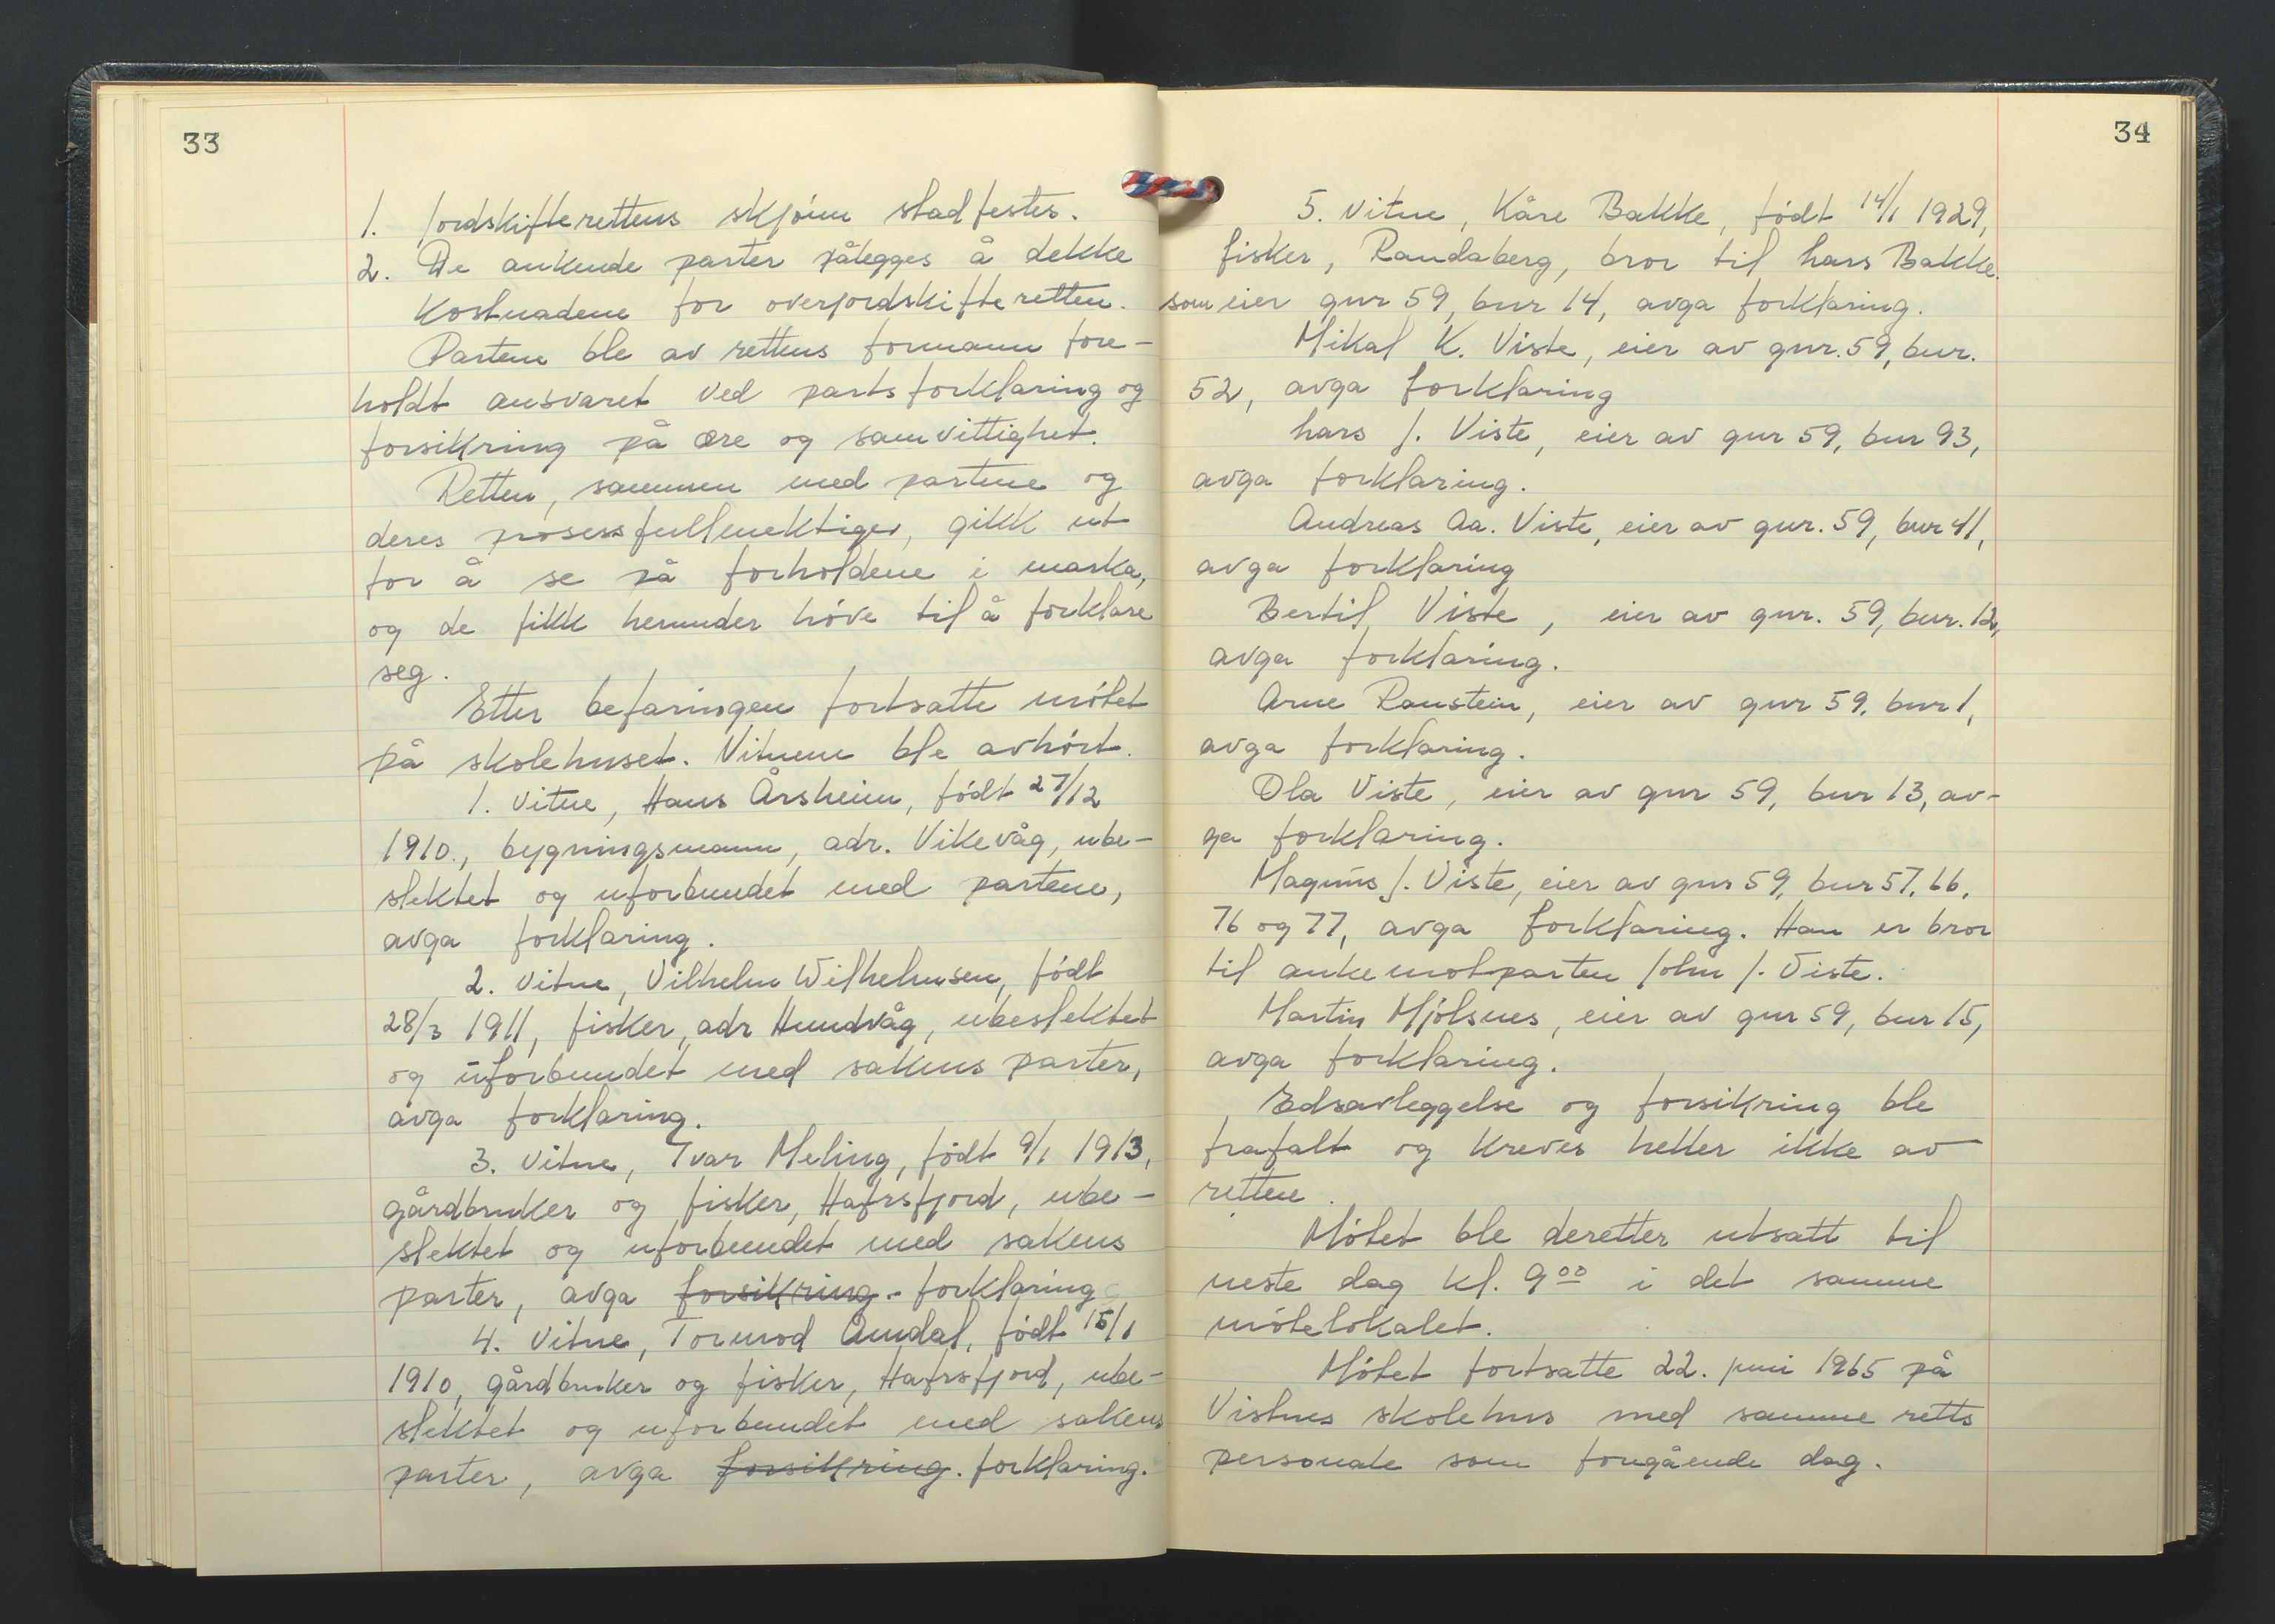 33
1. Jordskifterettens skjønn stadfestes.
2. De ankende parter pålegges å dekke
kostnadene for overjordskifteretten.
Partene ble av rettens formann fore-
holdt ansvaret ved partsforklaring og
forsikring på ære og samvittighet.
Retten, sammen med partene og
deres prosessfullmektiger, gikk ut
for å se på forholdene i marka,
og de fikk herunder høve til å forklare
seg.
Etter befaringen fortsatte møtet
på skolehuset. Vitnene ble avhørt.
1. vitne, Hans Årsheim, født 27/12
1910., bygningsmann, adr. Vikevåg, ube-
slektet og uforbundet med partene,
avga forklaring.
2. vitne, Vilhelm Wilhelmsen, født
28/3 1911, fisker, adr Hundvåg, ubeslektet
og uforbundet med sakens parter,
avga forklaring.
3. vitne, Ivar Meling, født 9/1 1913,
gårdbruker og fisker, Hafrsfjord, ube-
slektet og uforbundet med sakens
parter, avga forsikring. forklaring
4. vitne, Tormod Amdal, født 15/1
1910, gårdbruker og fisker, Hafrsfjord, ube-
slektet og uforbundet med sakens
parter, avga forsikring. forklaring.
34
5. vitne, Kåre Bakke, født 14/1 1929,
fisker, Randaberg, bror til Lars Bakke.
som eier gnr 59, bnr 14, avga forklaring.
Mikal K. Viste, eier av gnr. 59, bnr.
52, avga forklaring
Lars J. Viste, eier av gnr 59, bnr 93,
avga forklaring.
Andreas Aa. Viste, eier av gnr. 59, bnr 41,
avga forklaring
Bertil Viste, eier av gnr. 59, bnr. 12,
avga forklaring.
Arne Raustein, eier av gnr 59, bnr 1,
avga forklaring.
Ola Viste, eier av gnr 59, bnr 13, av-
ga forklaring.
Magnus J. Viste, eier av gnr 59, bnr 57, 66,
76 og 77, avga forklaring. Han er bror
til ankemotparten John J. Viste.
Martin Mjølsnes, eier av gnr 59, bnr 15,
avga forklaring.
Edsavleggelse og forsikring ble
frafalt og kreves heller ikke av
retten.
Møtet ble deretter utsatt til
neste dag kl. 9 00 i det samme
møtelokalet.
Møtet fortsatte 22. juni 1965 på
Vistnes skolehus med samme retts
personale som foregående dag.